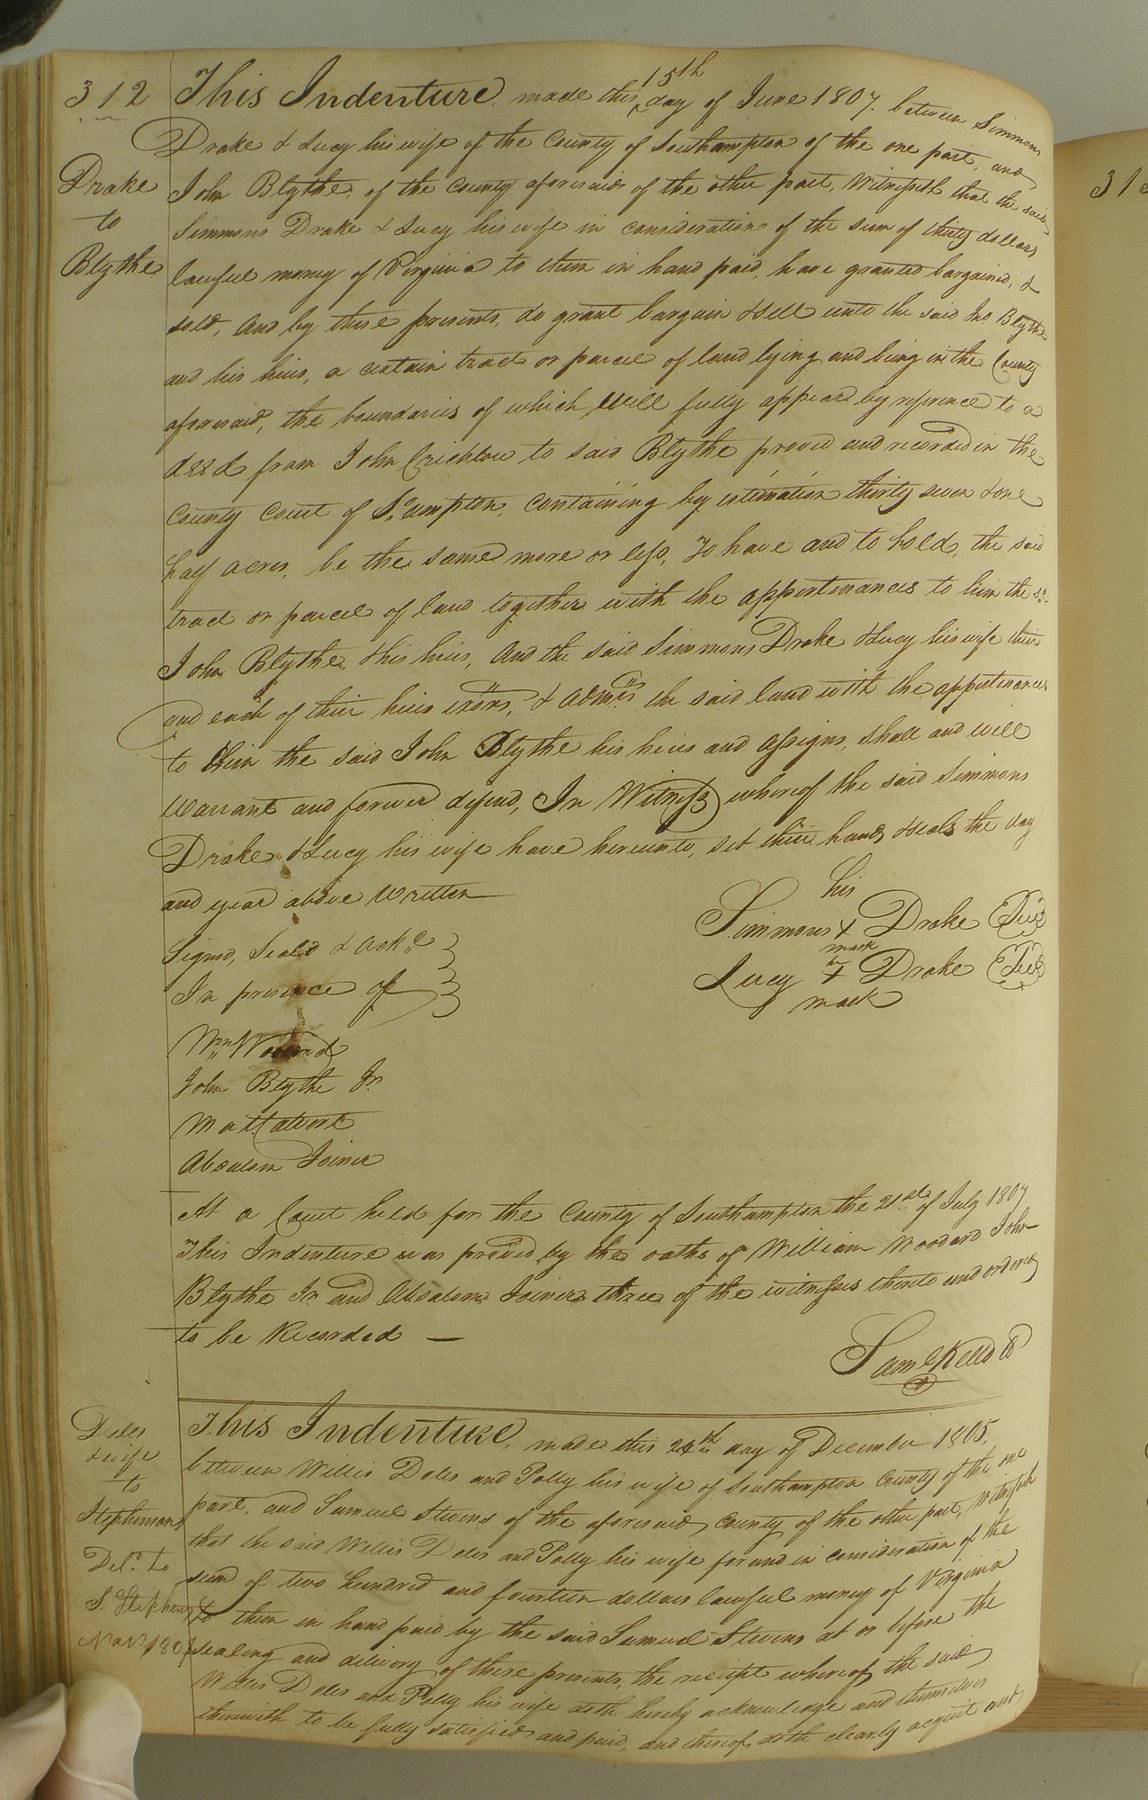 312
Drake
to
Blythe
This Indenture, made this 15th day of June 1807. between Simmons
Drake & Lucy his wife of the County of Southampton of the one part, and
John Blythe, of the County aforesaid of the other part, Witnesseth that the said
Simmons Drake & Lucy his wife in consideration of the sum of thirty dollars
lawful money of Virginia to them in hand paid, have granted bargained, &
sold, And by these presents, do grant bargain & sell unto the said Jno Blythe
and his heirs, a certain tract or parcel of land lying and being in the County
aforesaid, the boundaries of which Will fully appear by reference to a
deed from John Crichlow to said Blythe proved and recorded in the
County Court of So.ampton, containing by estimation thirty seven & one
half acres, be the same more or less, To have and to hold, the said
tract or parcel of land together with the appertinances to him the sd.
John Blythe, & his heirs, And the said Simmons Drake & Lucy his wife their
and each of their heirs exōrs, & Admrs the said land with the appertinances
to Him the said John Blythe his heirs and assigns, shall and will
Warrant and forever defend, In Witness whereof the said Simmons
Drake & Lucy his wife have hereunto, set their hands & seals the day
and year above Written
his
Simmons X Drake
mark
Lucy X Drake
mark
Signd, Seal'd & Ackd
In presence of
Wm Woodard
John Blythe Jr.
Absalom Joiner
At a Court held for the County of Southampton the 21st of July 1807
This Indenture was proved by the oaths of William Woodard John
Blythe Jr and Absalom Joiner three of the witnesses thereto and ordered
to be Recorded —
Saml Kello
Doles
& wife
to
Stephenson
Deld. to
S. Stephens
Novr 180
This Indenture, made this 24th day of December 1805,
between Willis Doles and Polly his wife of Southampton County of the one
part, and Samuel Stevens of the aforesaid County of the other part, Witnesseth
that the said Willis Doles and Polly his wife for and in consideration of the
sum of two hundred and fourteen dollars lawful money of Virginia
to them in hand paid by the said Samuel Stevens at or before the
sealing and delivery of these presents, the receipt whereof, the said
Willis Doles and Polly his wife doth hereby acknowledge and themselves
therewith to be fully satisfied and paid, and thereof doth clearly acquit and